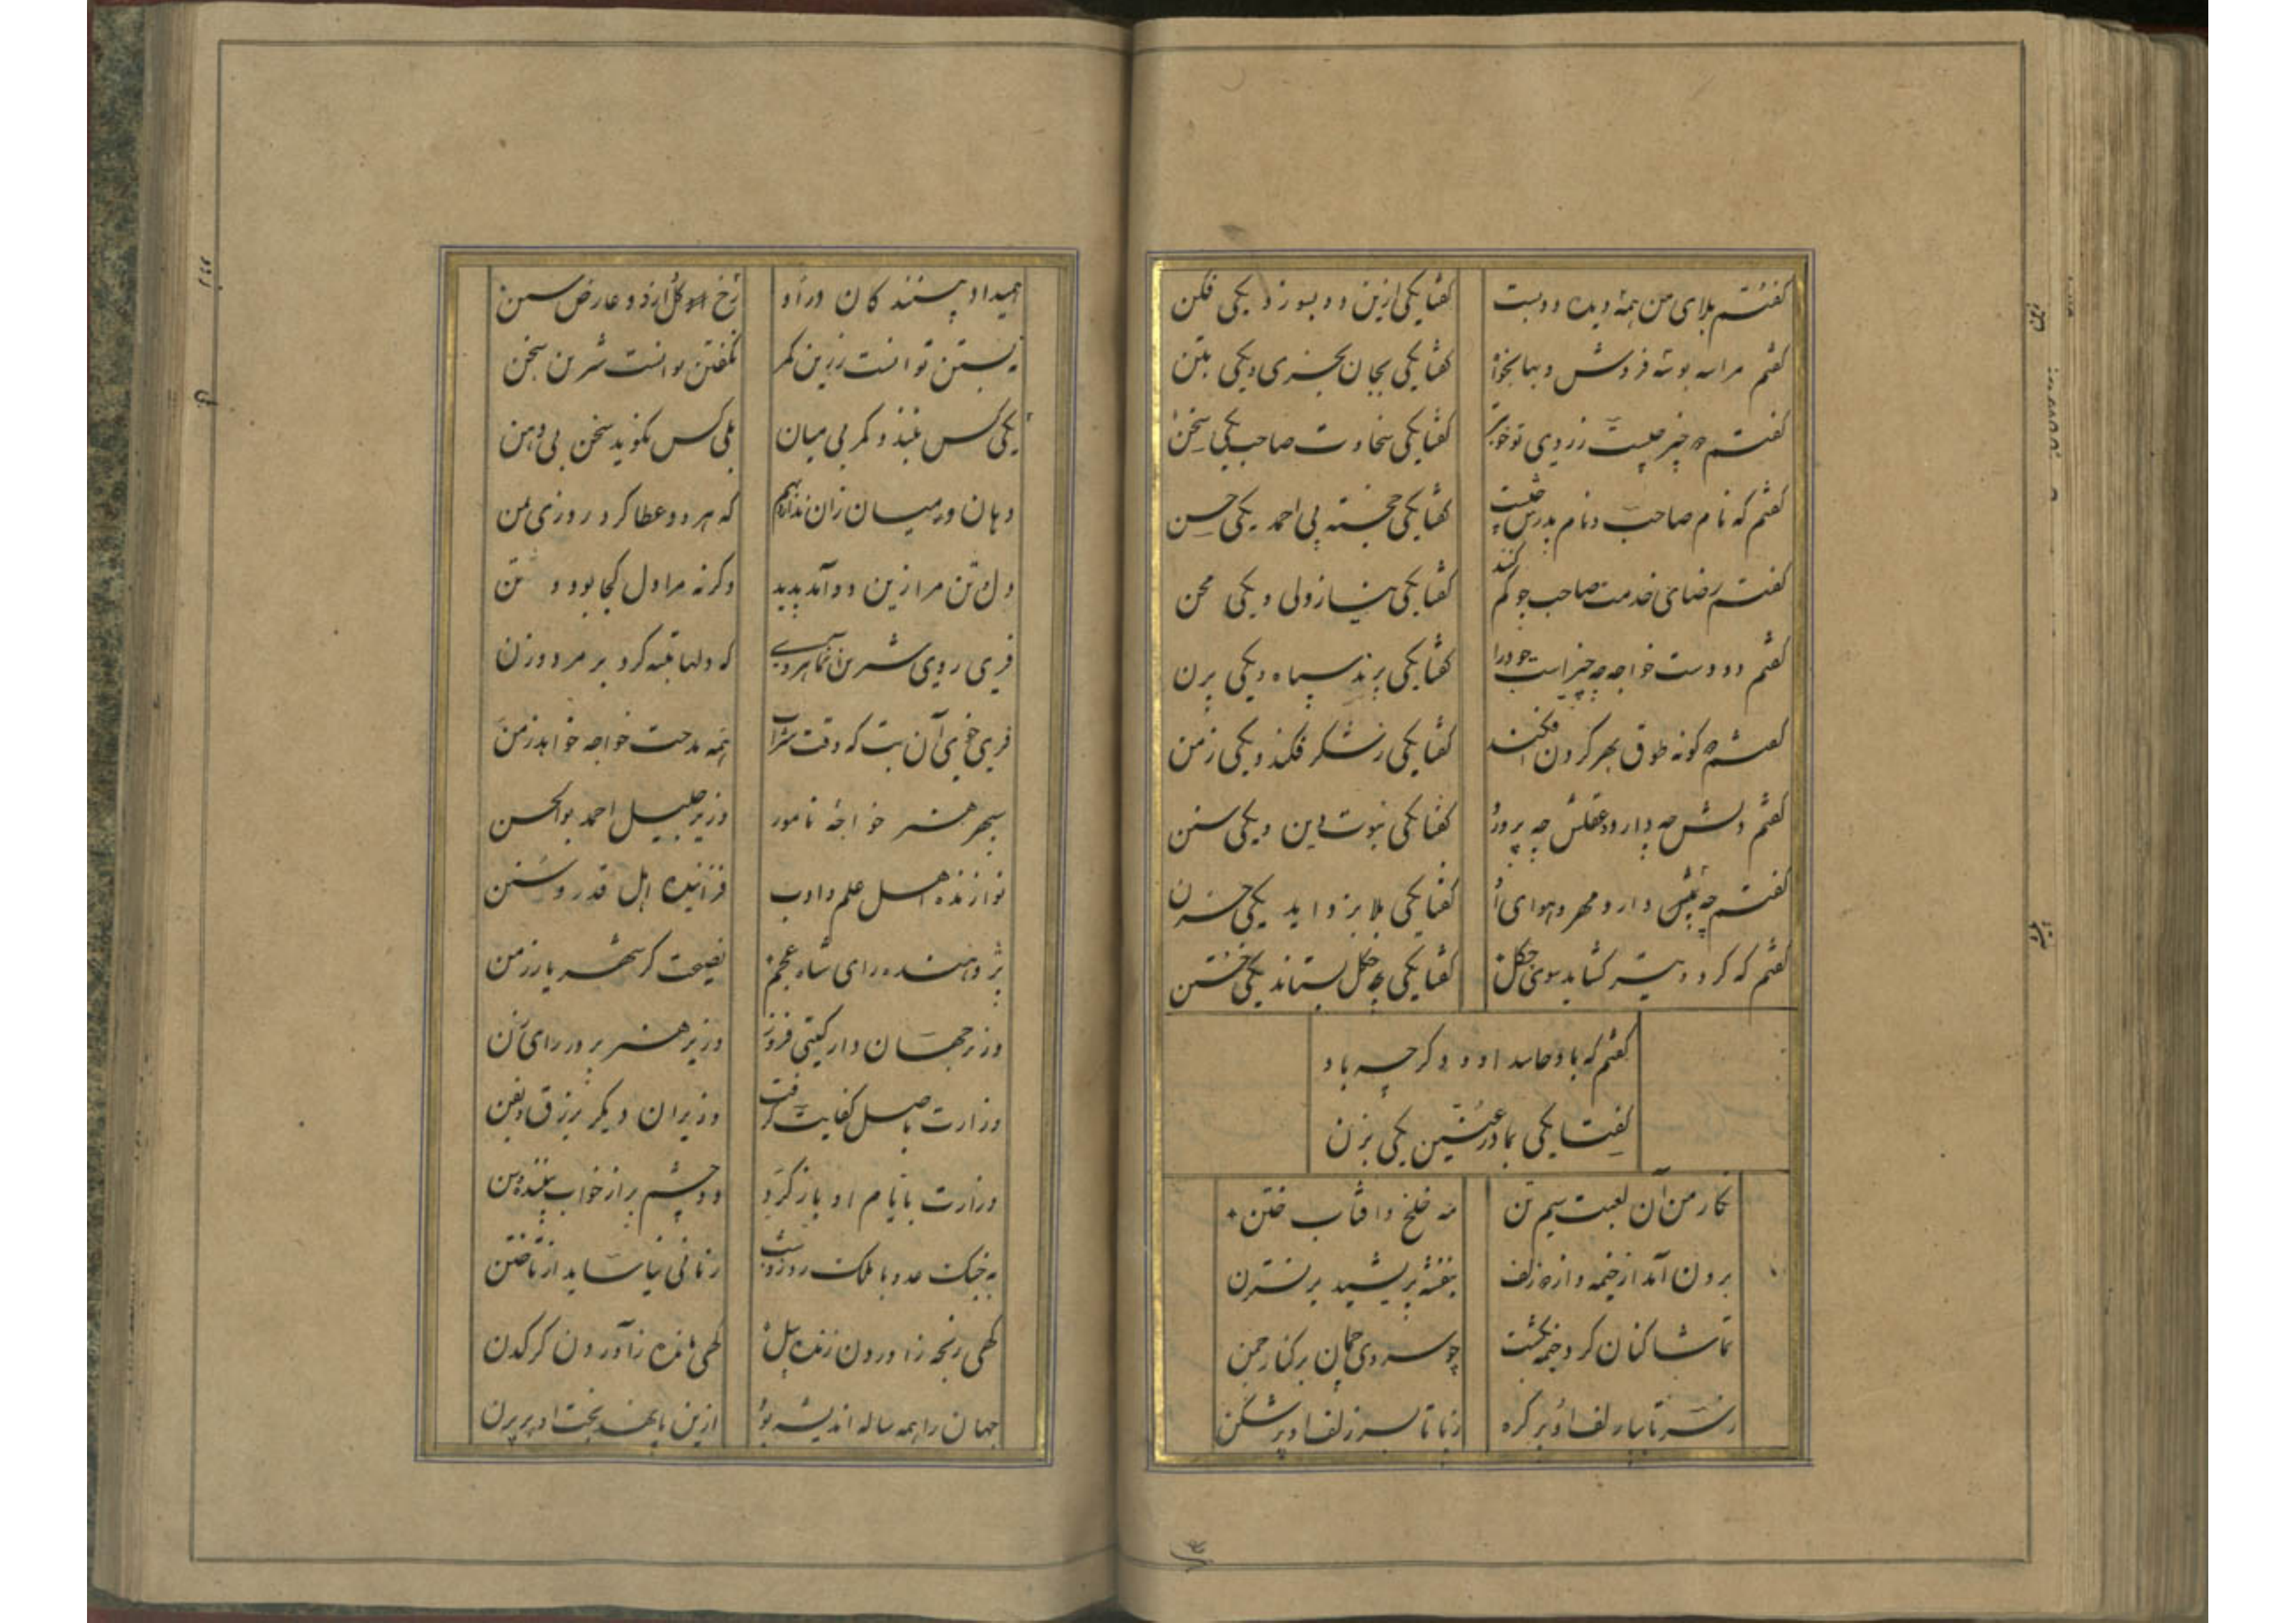 گفتم بلای من همه دیده و دلست
گفتا یکی ازین دو بسوز و یکی فکن
گفتم مرا سه بوسه فروش و بها بخواه
گفتا یکی بجان بخری و یکی بتن
گفتم چه چیز چیست ز روی تو خوبتر
گفتا یکی سخاوت صاحب یکی سخن
گفتم که نام صاحب و نام پدرش چیست
گفتا یکی خجسته پی احمد یکی حسن
گفتم رضای خدمت صاحب چو کم کند
گفتا یکی نیاز ولی و یکی محن
گفتم دو دست خواجه چه چیز است جود را
گفتا یکی پرند سیاه و یکی پرن
گفتم چه گونه طوق بهر گردن افکند
گفتا یکی ز شکر فکند و یکی ز من
گفتم دلش چه دارد و عقلش چه پرورد
گفتا یکی نبوت دین و یکی سنن
گفتم چه پیش دارد و مهر و هوای او
گفتا یکی بلا بزداید یکی حزن
گفتم که کرد دست گشاید سوی چگل
گفتا یکی چگل بستاند یکی ختن
گفتم که باد حاسد او دو دگر چه باد
گفتا یکی بماد رغمین یکی بزن
نگار من آن لعبت سیم تن
مه خلخ و آفتاب ختن
برون آمد از خیمه و از دو زلف
بنفشه پریشید بر نسترن
تماشا کنان گرد خیمه بگشت
چو سروی چمان بر کنار چمن
ز سر تا بپا زلف او پر گره
ز پا تا بسر زلف او پر شکن
همیداد بیننده کان در او
رخ او گل ارزد و عارض سمن
ببستن توانست زرین کمر
بگفتن توانست شیرین سخن
یکی کس نبندد کمر بی میان
بلی کس نگوید سخن بی دهن
دهان و میان زان ندارد بهم
که هر دو عطا کرد روزی من
دل و تن مرا زین دو آمد پدید
وگرنه مرا دل کجا بود و تن
فری روی شیرین آن ماهروی
که دلها تبه کرد بر مرد و زن
فری خوی آن بت که وقت شراب
همه مدحت خواجه خواهد ز من
سپهر هنر خواجهٔ نامور
وزیر جلیل احمد بوالحسن
نوازنده اهل علم و ادب
فزاینده اهل قدر و سنن
پژوهنده رای شاه عجم
نصیحت گر شهریار زمن
وزیر جهاندار گیتی فروز
وزیر هنرپرور رای زن
وزارت باصل کفایت گرفت
وزیران دیگر بزرق و بفن
وزارت بایام او باز کرد
دو چشم پر از خواب بیننده من
به جنگ عدو با ملک روز و شب
زمانی نیاساید از تاختن
گهی رنجه ز آوردن زنده پیل
گهی مانده ز آوردن کرگدن
جهان را همه ساله اندیشه بود
ازین تا نهد تخت او بر پرن